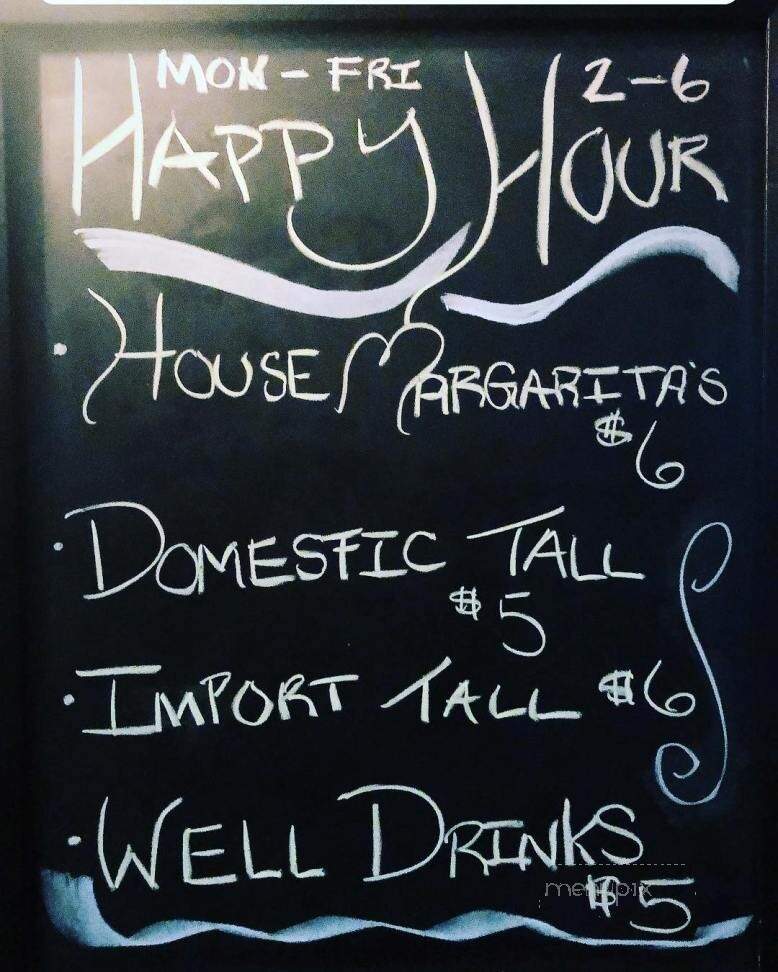 MON - FRI 2-6
HAPPY HOUR
• HOUSE MARGARITA'S
$6
• DOMESTIC TALL
$5
• IMPORT TALL $6
• WELL DRINKS
$5
menupix